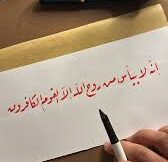 انه لا ييأس من روح الله إلا القوم الكافرون